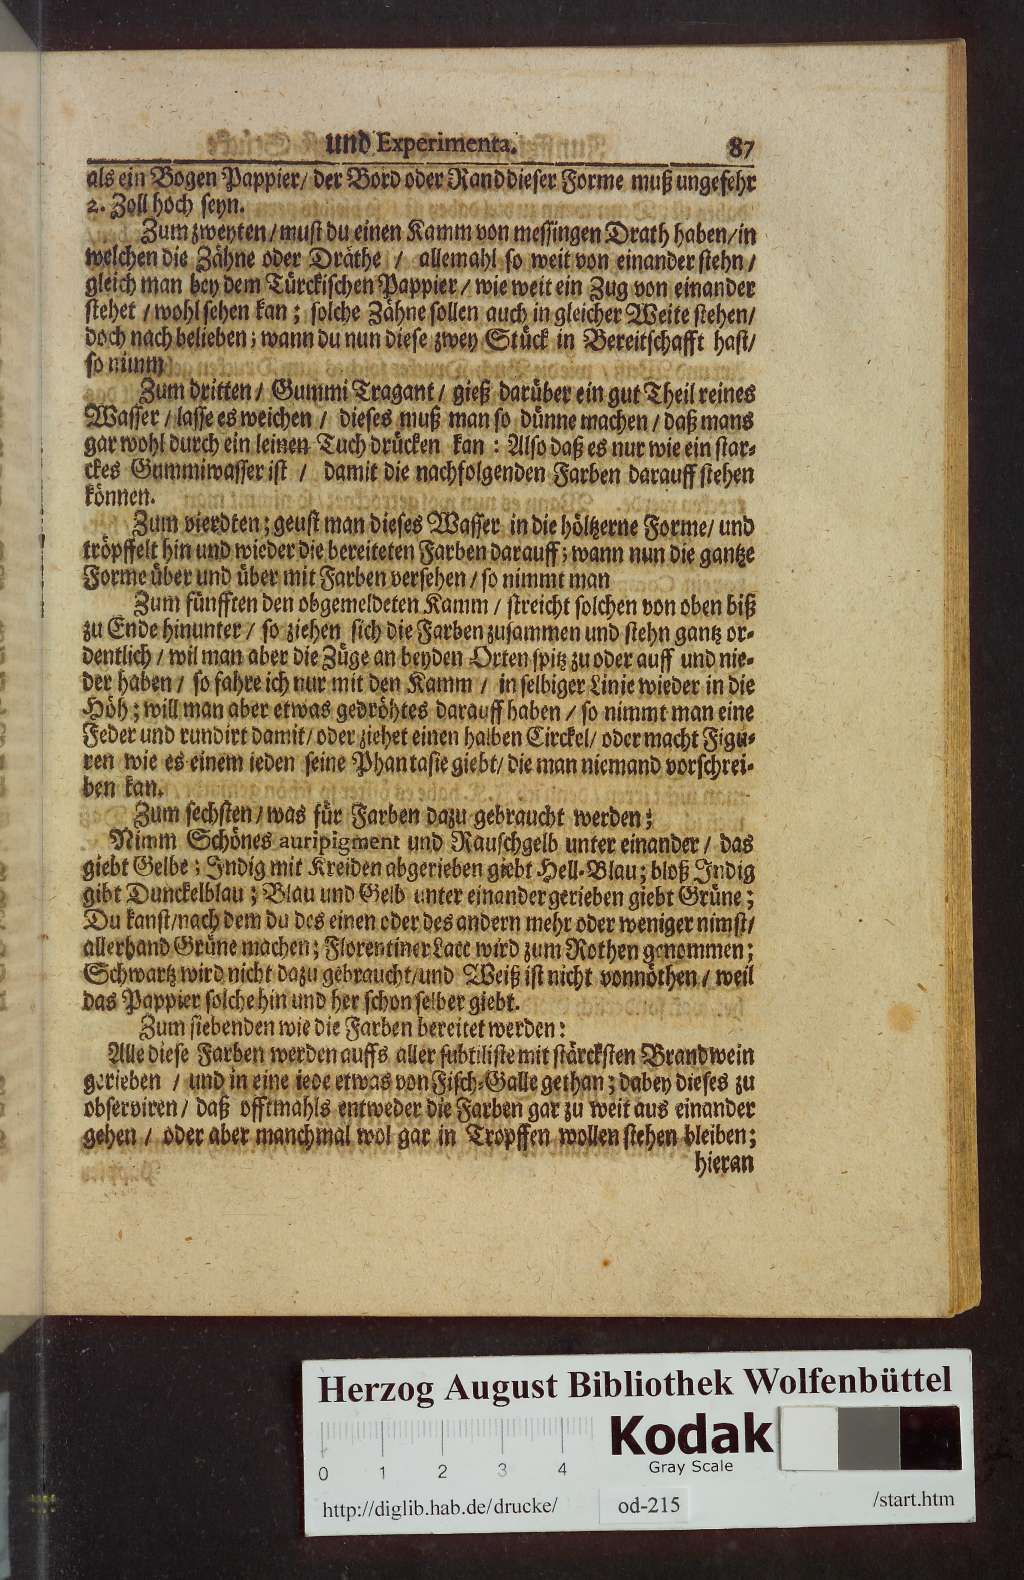 und Experimenta. 87
als ein Bogen Pappier/ der Bord oder Rand dieser Forme muß ungefehr
2. Zoll hoch seyn.
Zum zweyten/ must du einen Kamm von messingen Drath haben/ in
welchen die Zähne oder Dräthe / allemahl so weit von einander stehn/
gleich man bey dem Türckischen Pappier/ wie weit ein Zug von einander
stehet / wohl sehen kan; solche Zähne sollen auch in gleicher Weite stehen/
doch nach belieben; wann du nun diese zwey Stück in Bereitschafft hast/
so nimm
Zum dritten/ Gummi Tragant/ gieß darüber ein gut Theil reines
Wasser/ lasse es weichen / dieses muß man so dünne machen/ daß mans
gar wohl durch ein leinen Tuch drücken kan: Also daß es nur wie ein star-
ckes Gummiwasser ist / damit die nachfolgenden Farben darauff stehen
können.
Zum vierdten; geust man dieses Wasser in die höltzerne Forme/ und
tröpffelt hin und wieder die bereiteten Farben darauff; wann nun die gantze
Forme über und über mit Farben versehen/ so nimmt man
Zum fünfften den obgemeldeten Kamm/ streicht solchen von oben biß
zu Ende hinunter/ so ziehen sich die Farben zusammen und stehn gantz or-
dentlich/ wil man aber die Züge an beyden Orten spitz zu oder auff und nie-
der haben/ so fahre ich nur mit den Kamm / in selbiger Linie wieder in die
Höh; will man aber etwas gedröhtes darauff haben/ so nimmt man eine
Feder und rundirt damit/ oder ziehet einen halben Circkel/ oder macht Figu-
ren wie es einem ieden seine Phantasie giebt/ die man niemand vorschrei-
ben kan.
Zum sechsten/ was für Farben dazu gebraucht werden;
Nimm Schönes auripigment und Rauschgelb unter einander/ das
giebt Gelbe; Indig mit Kreiden abgerieben giebt Hell-Blau; bloß Indig
gibt Dunckelblau; Blau und Gelb unter einander gerieben giebt Grüne;
Du kanst/ nach dem du des einen oder des andern mehr oder weniger nimst/
allerhand Grüne machen; Florentiner Lacc wird zum Rothen genommen;
Schwartz wird nicht dazu gebraucht/ und Weiß ist nicht vonnöthen/ weil
das Pappier solche hin und her schon selber giebt.
Zum siebenden wie die Farben bereitet werden:
Alle diese Farben werden auffs aller subtiliste mit stärcksten Brandwein
gerieben / und in eine iede etwas von Fisch-Galle gethan; dabey dieses zu
observiren/ daß offtmahls entweder die Farben gar zu weit aus einander
gehen / oder aber manchmal wol gar in Tropffen wollen stehen bleiben;
hieran
Herzog August Bibliothek Wolfenbüttel
Kodak
Gray Scale
0 1 2 3 4
http://diglib.hab.de/drucke/ od-215 /start.htm